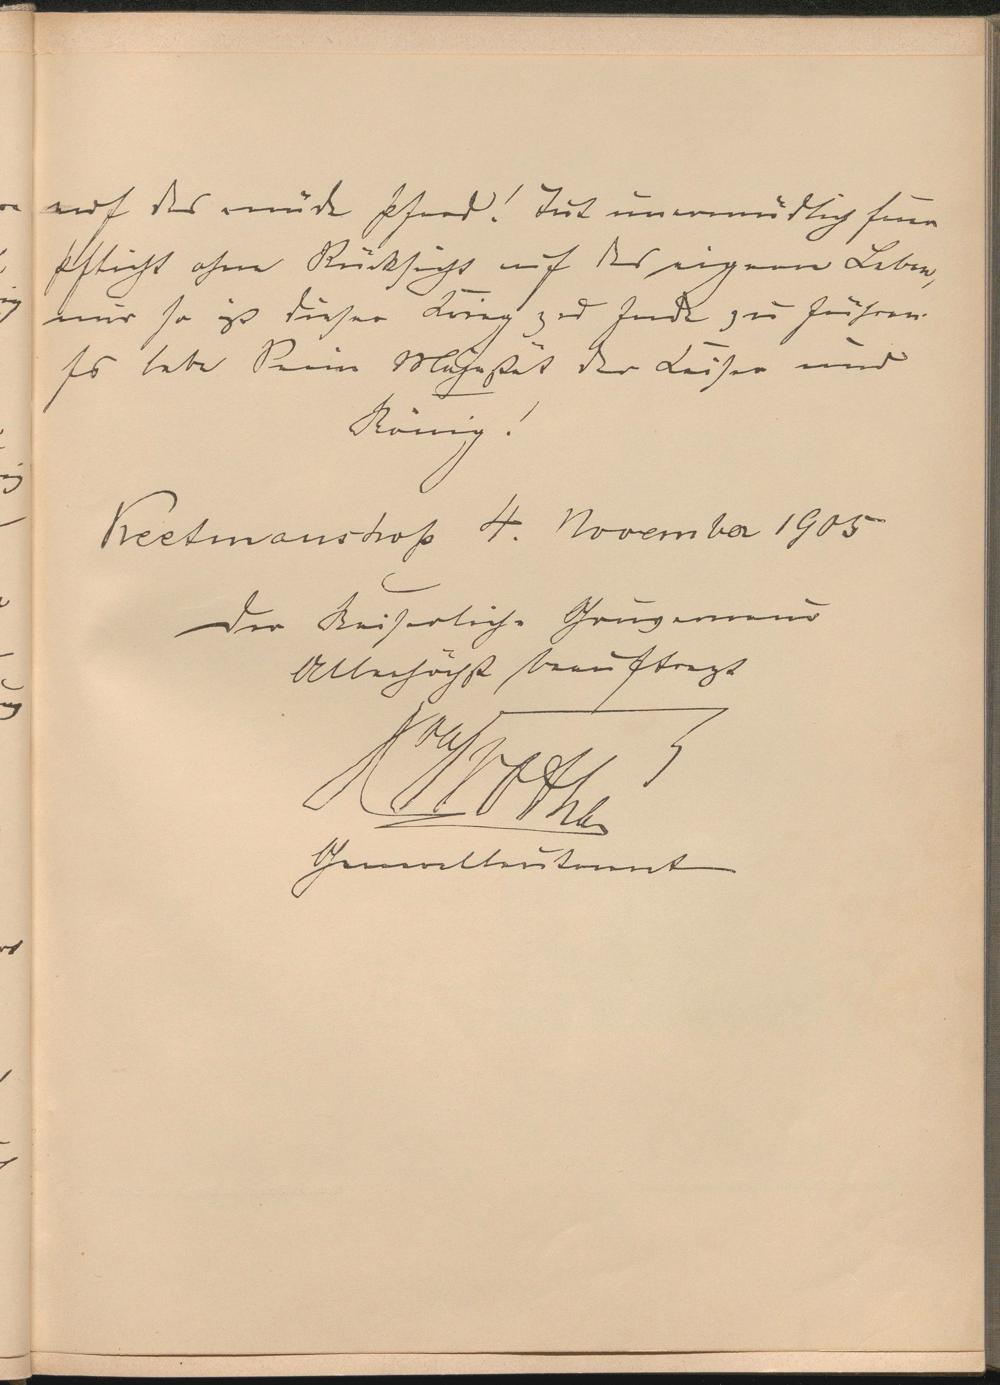 auf das müde Pferd! Tut unermüdlich Eure
Pflicht ohne Rücksicht auf das eigene Leben,
nur so ist dieser Krieg zu Ende zu führen.
Es lebe Seine Majestät der Kaiser und
König!
Keetmanshop 4. November 1905
Der Kaiserliche Gouverneur
Allerhöchst beauftragt
von Trotha
Generalleutnant